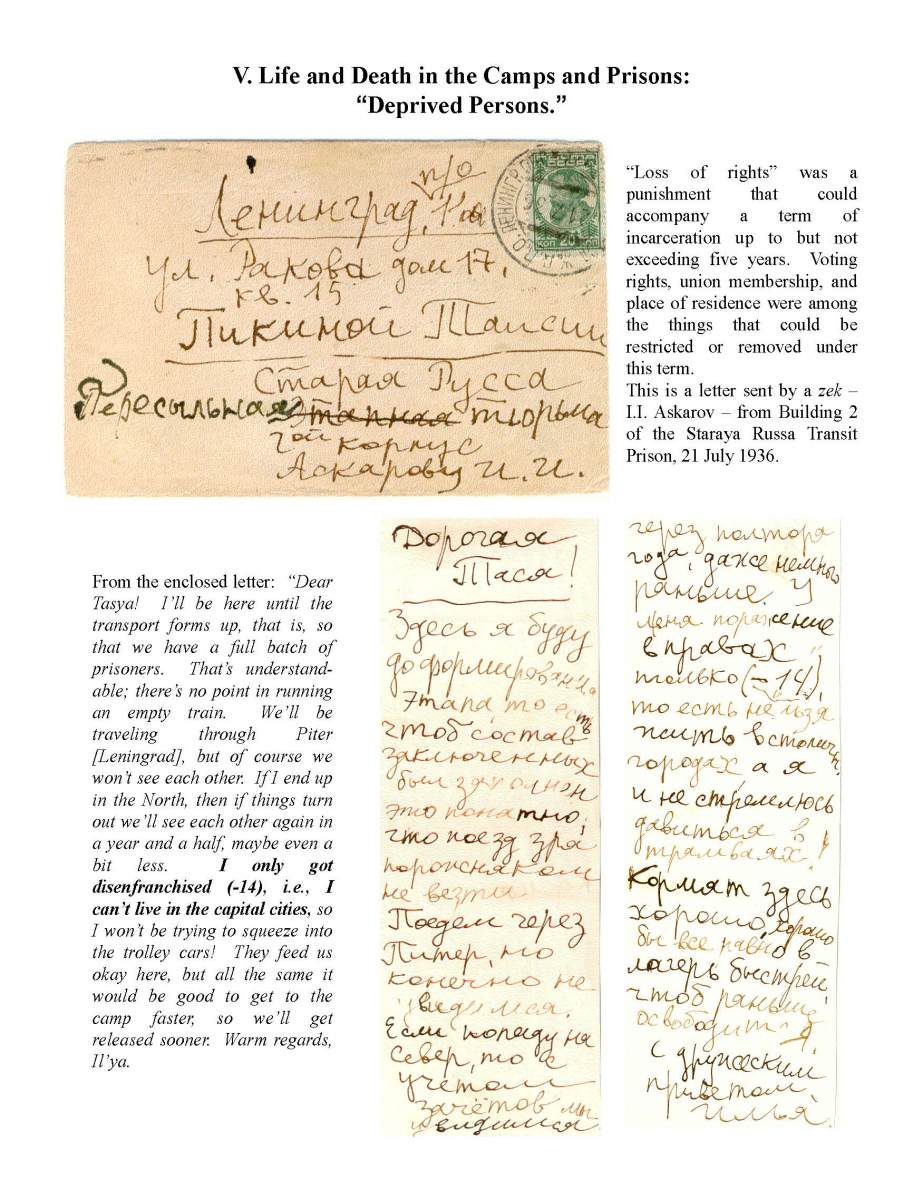 V. Life and Death in the Camps and Prisons:
“Deprived Persons.”
п/о
Ленинград,
ул. Ракова дом 17,
кв. 15
Пикиной Таисии
Старая Русса
Пересыльная Этапная тюрьма
2ой корпус
Аскарову И. И.
СССР
КОП 20
“Loss of rights” was a
punishment that could
accompany a term of
incarceration up to but not
exceeding five years. Voting
rights, union membership, and
place of residence were among
the things that could be
restricted or removed under
this term.
This is a letter sent by a zek –
I.I. Askarov – from Building 2
of the Staraya Russa Transit
Prison, 21 July 1936.
From the enclosed letter: “Dear
Tasya! I’ll be here until the
transport forms up, that is, so
that we have a full batch of
prisoners. That’s understand-
able; there’s no point in running
an empty train. We’ll be
traveling through Piter
[Leningrad], but of course we
won’t see each other. If I end up
in the North, then if things turn
out we’ll see each other again in
a year and a half, maybe even a
bit less. I only got
disenfranchised (-14), i.e., I
can’t live in the capital cities, so
I won’t be trying to squeeze into
the trolley cars! They feed us
okay here, but all the same it
would be good to get to the
camp faster, so we’ll get
released sooner. Warm regards,
Il’ya.
Дорогая
Тася!
Здесь я буду
до формирования
этапа, то есть
чтоб состав
заключенных
был
это понятно,
что поезд зря
порожняком
не везти
Поедем через
Питер, но
конечно не
увидимся.
Если попаду на
Север, то с
учётом
зачётов мы
увидимся
через полтора
года, даже немного
раньше. У
меня поражение
в правах
только (-14),
то есть нельзя
жить в столичн.
городах а я
и не стремлюсь
давиться в
трамваях!
Кормят здесь
хорошо, хорошо
бы все равно в
лагерь быстрей
чтоб раньше
с дружеским
приветом
Илья.